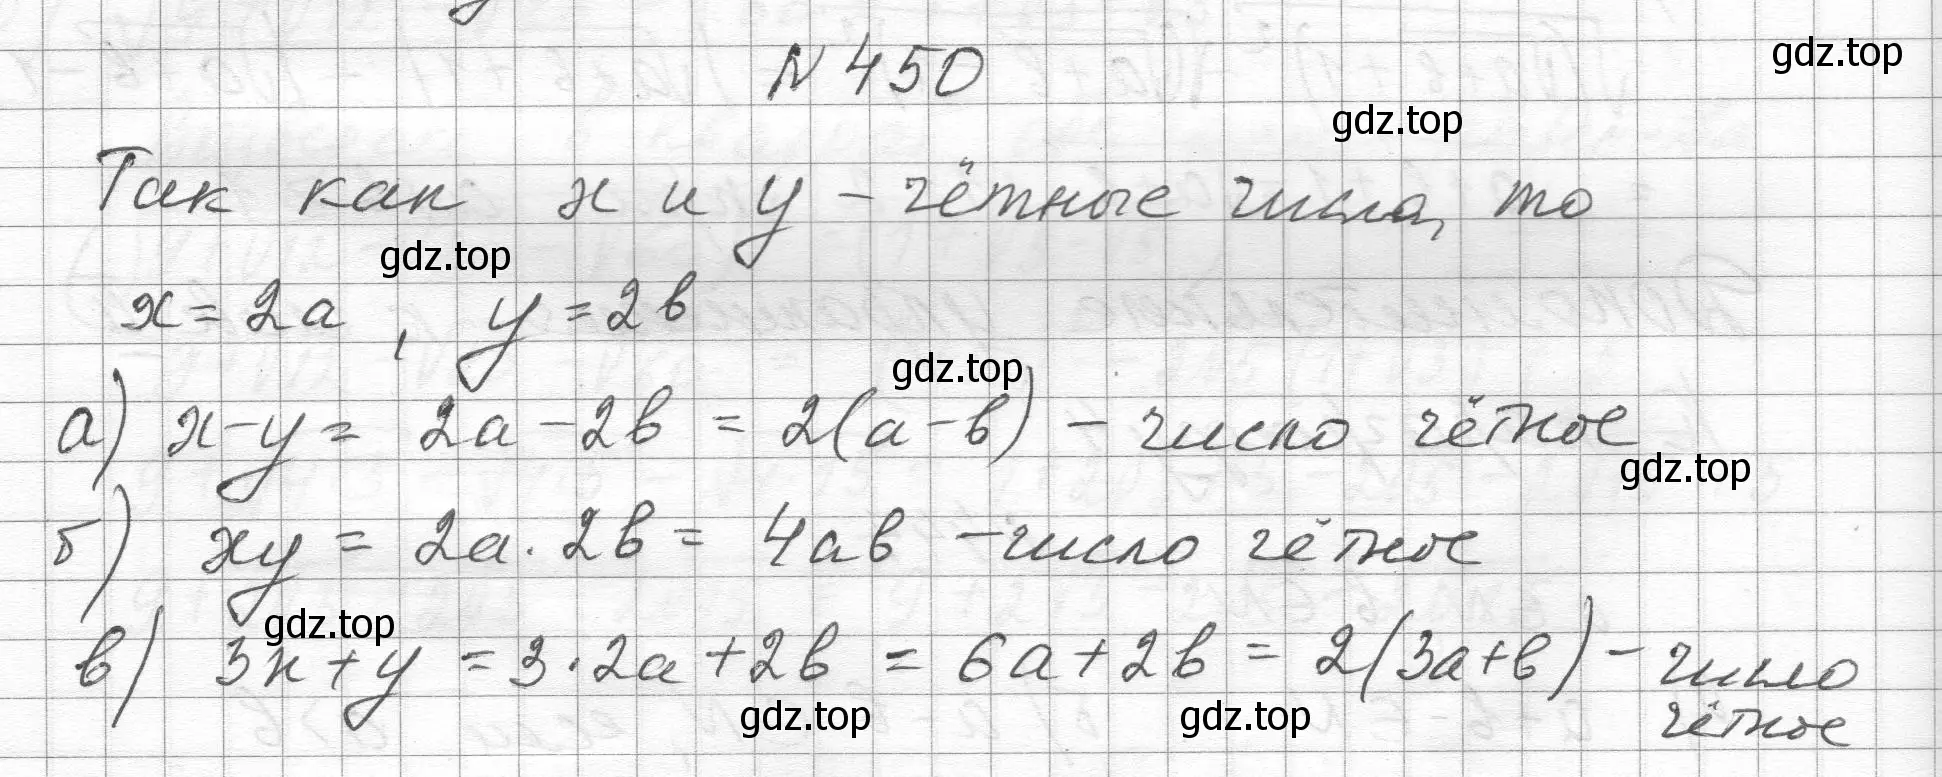 N 450
gdz.top
gdz.top
Так как x и y – чётные числа, то
gdz.top
x = 2a, y = 2b
gdz.top
а) x - y = 2a - 2b = 2(a - b) – число чётное
gdz.top
б) xy = 2a · 2b = 4ab – число чётное
gdz.top
в) 3x + y = 3 · 2a + 2b = 6a + 2b = 2(3a + b) – число
чётное
gdz.top
gdz.top